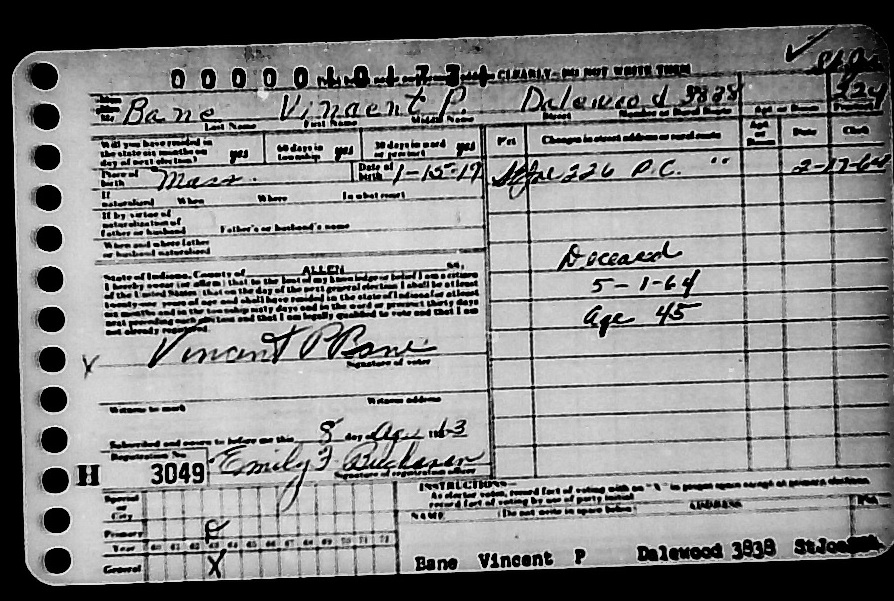 0 0 0 0 0 1 0 1 7 3 1 CLEARLY - DO NOT WRITE THEM
St Joe
Bane Vincent P. Dalewood 3838 224
Last Name First Name Middle Name Street Number or Rural Route Apt or Room Precinct
Will you have resided in the state six months on day of next election? yes 60 days in township yes 30 days in ward or precinct yes
Pct Changes in street address or rural route Apt or Room Date Clerk
Place of birth Mass. Date of birth 1-15-19
St Joe 226 P.C. " 2-17-64
If naturalized When Where In what court
If by virtue of naturalization of father or husband Father's or husband's name
When and where father or husband naturalized
State of Indiana, County of ALLEN SS,
I hereby swear (or affirm) that to the best of my knowledge or belief I am a citizen
of the United States; that on the day of the next general election I shall be at least
twenty-one years of age and shall have resided in the state of Indiana for at least
six months and in the township sixty days and in the ward or precinct thirty days
next preceding such election and that I am legally qualified to vote and that I am
not already registered.
Deceased
5-1-64
age 45
X Vincent P Bane
Signature of voter
Witness to mark Witness address
Subscribed and sworn to before me this 8 day of 63
Registration No.
H 3049 Emily F. Buchanan
Signature of registration officer
INSTRUCTIONS—
As elector votes, record fact of voting with an "X" in proper space except at primary elections,
record fact of voting by use of party initial
NAME (Do not write in space below) ADDRESS PCT.
Special or City
Primary R
Year 60 61 62 63 64 65 66 67 68 69 70 71 72
General X
Bane Vincent P Dalewood 3838 St Joe